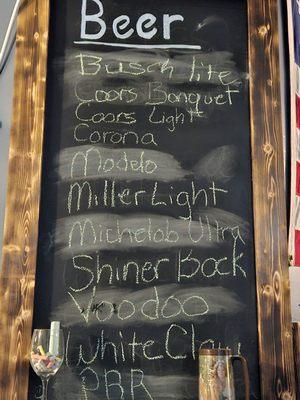 Beer
Busch lite
Coors Banquet
Coors Light
Corona
Modelo
Miller Light
Michelob Ultra
Shiner Bock
Voodoo
White Claw
PBR